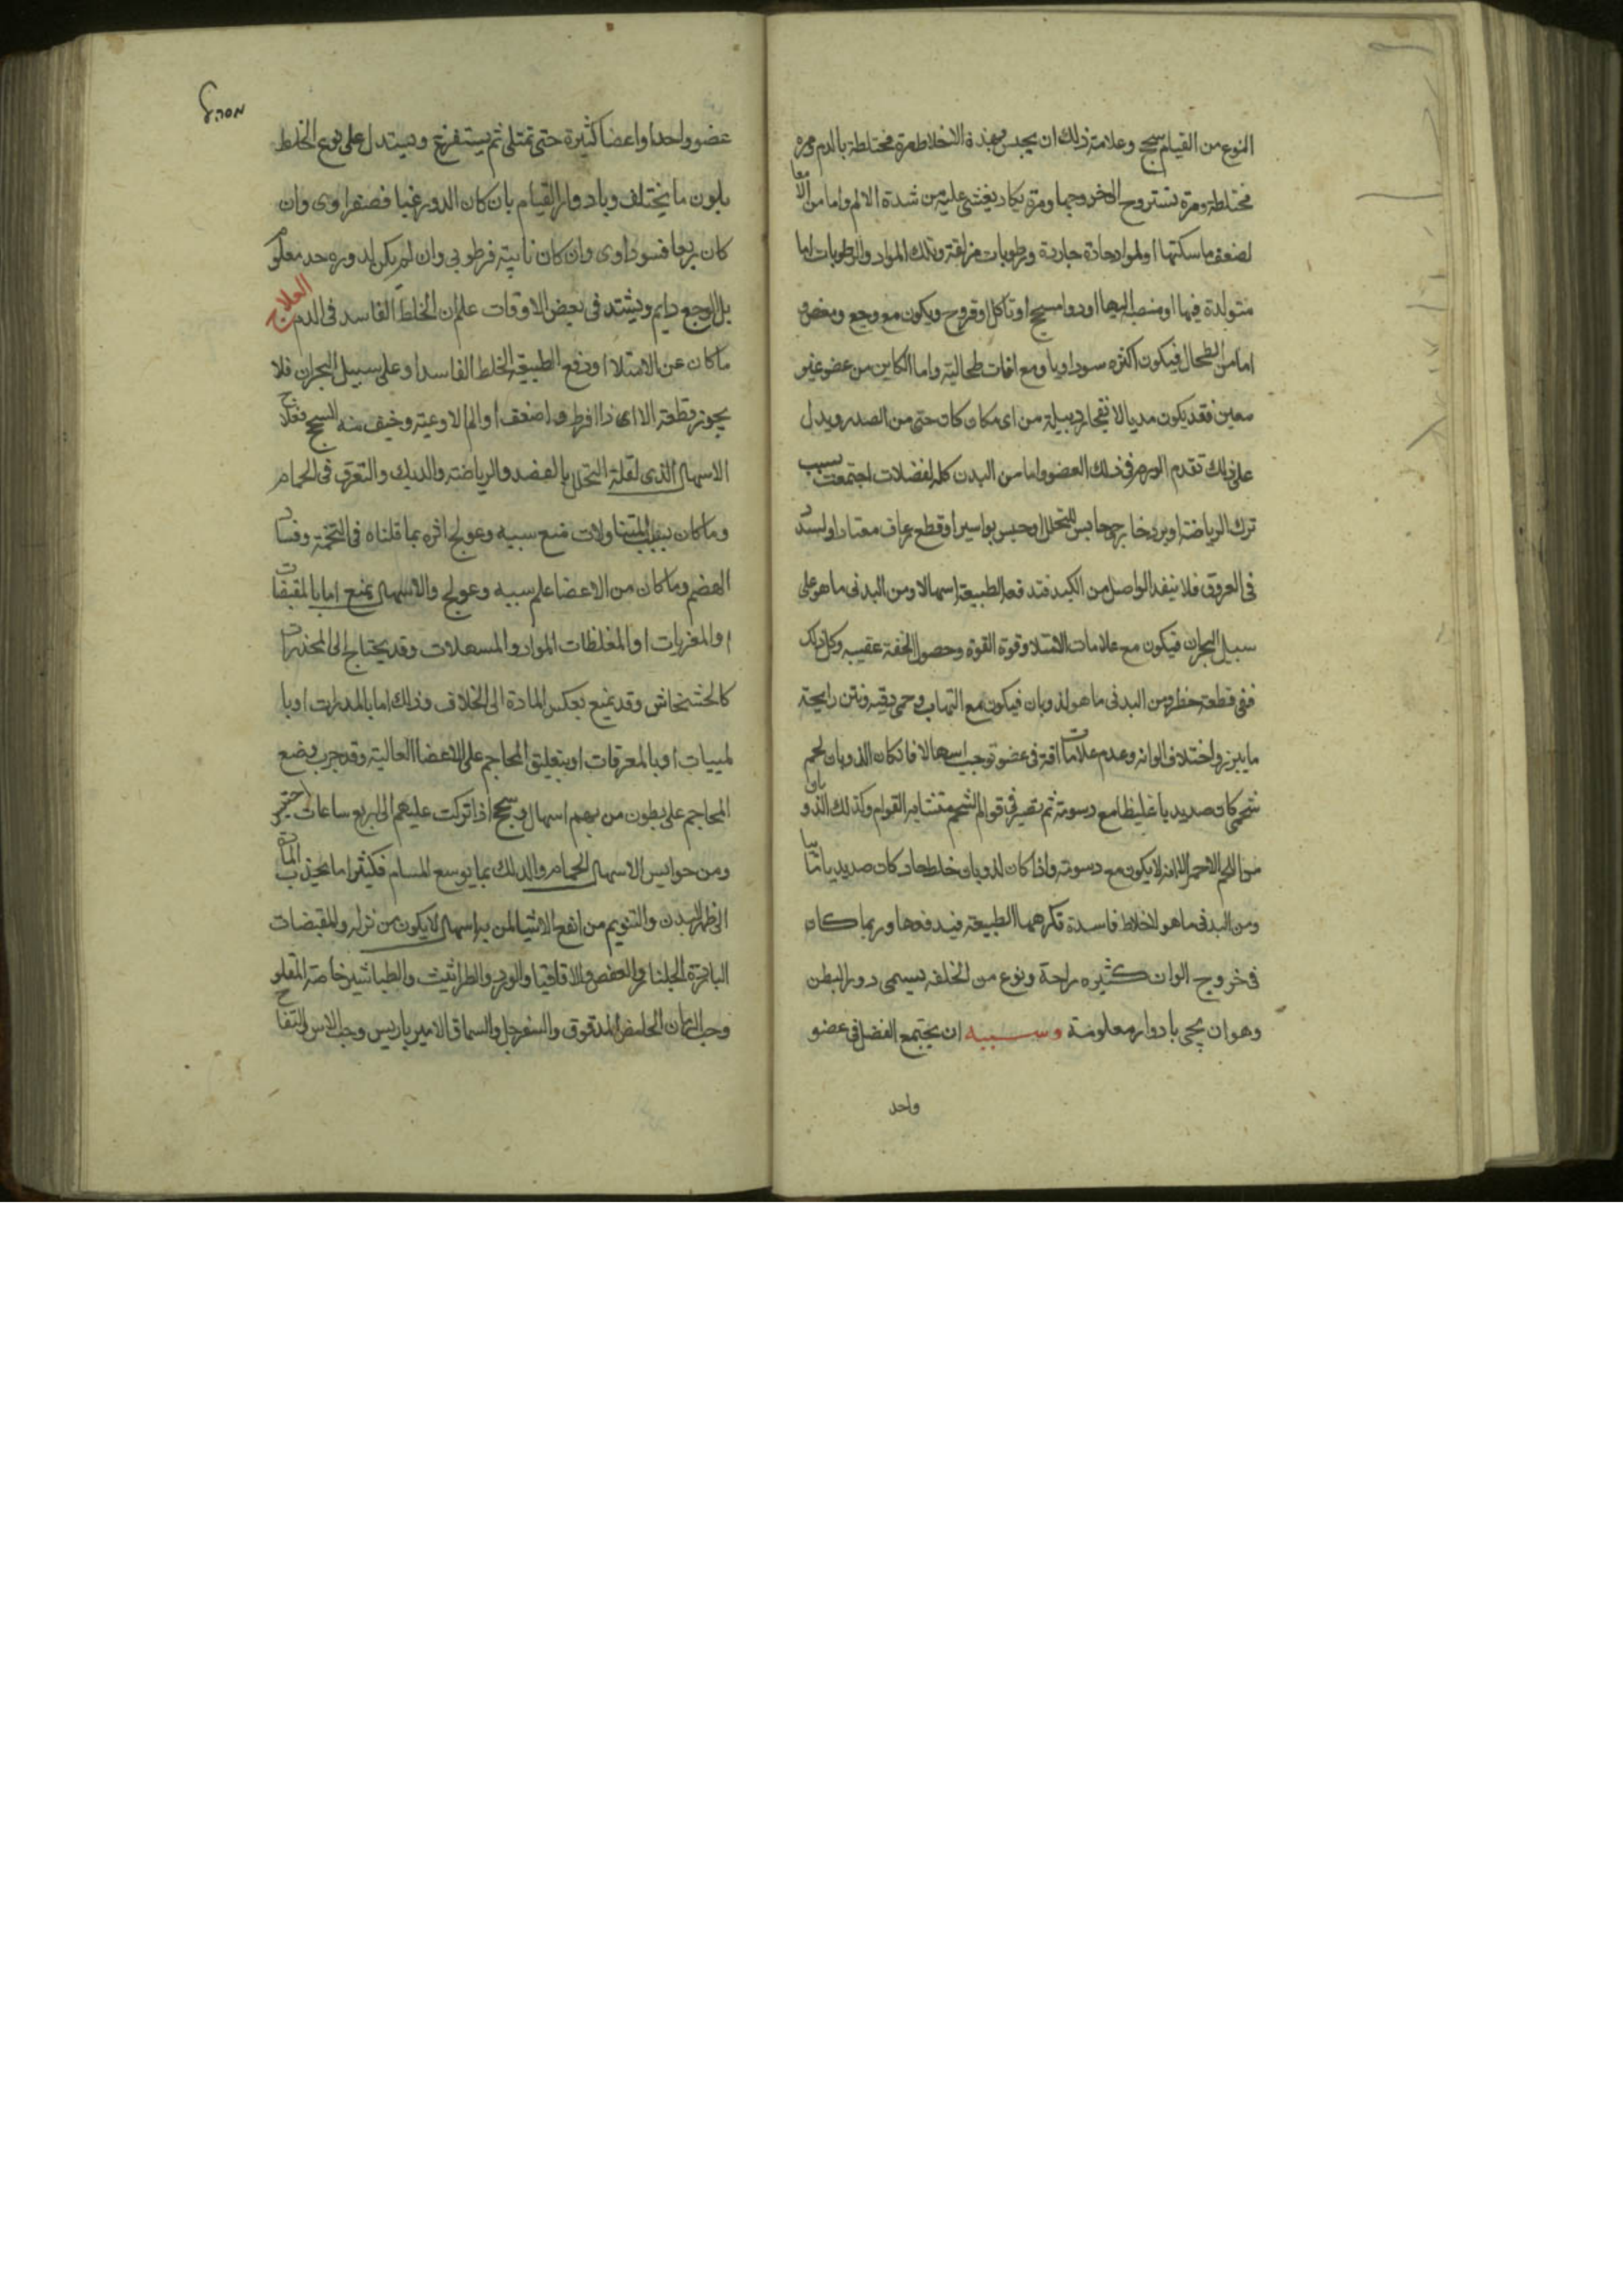 النوع من القيام سحج وعلامة ذلك ان يحبس بهذة الاخلاط مرة مختلطة بالدم ومرة
مختلطة ومرة تستروح الى خروجها ومرة يكاد يغشى عليه من شدة الالم واما من الامعا
لضعف ماسكتها او لمواد حادة جاردة ورطوبات مزلقة وتلك المواد والرطوبات اما
متولدة فيها او منصبة اليها او دوا مسحج او تاكل او قروح ويكون مع وجع ومغص و
اما من الطحال فيكون اكثره سوداويا ومع افات طحالية واما الكاين من عضو غير
معين فقد يكون مديا لانفجار دبيلة من اى مكان كان حتى من الصدر ويدل
على ذلك تقدم الورم فى ذلك العضو واما من البدن كله لفضلات اجتمعت بسبب
ترك الرياضة او برد خارجى حابس للتحلل او حبس بواسير او قطع رعاف معتاد او لسدد
فى العروق فلا ينفد الواصل من الكبد فتدفعه الطبيعة اسهالا ومن البدنى ما هو على
سبيل البحران فيكون مع علامات الامتلا وقوة القوة وحصول الخفة عقيبه وكل ذلك
ففى قطعه خطر ومن البدنى ما هو لذوبان فيكون مع التهاب وحمى دقيه ونتن رايحة
ما يبرز واختلاف الوانه وعدم علامات افة فى عضو توجب اسهالا فان كان الذوبان لحم
شحمى كان صديديا غليظا مع دسومة ثم تصير فى قوام الشحم متشابه القوام وكذلك الذوبان
من اللحم الاحمر الا انه لا يكون مع دسومة واذا كان لذوبان خلط حاد كان صديديا
ومن البدنى ما هو لاخلاط فاسدة تكرهها الطبيعة فيندفعها وربما كان
فى خروج الوان كثيره راحة ونوع من الخلفه يسمى دور البطن
وهو ان يجى بادوار معلومة وسببه ان يجتمع الفضل فى عضو
واحد
عضو واحد او اعضا كثيرة حتى تمتلى ثم يستفرغ ويستدل على نوع الخلط
بلون ما يختلف وبادوار القيام بان كان الدور غبا فصفراوى وان
كان ربعا فسوداوى وان كان نايبه فرطوبى وان لم يكن لدوره حد معلوم
بل الوجع دايم ويشتد فى بعض الاوقات علم ان الخلط الفاسد فى الدم العلاج
ما كان عن الامتلا او دفع الطبيعة الخلط الفاسد او على سبيل البحران فلا
يجوز قطعه الا اى اذا افرط واضعف او الم الاوعية وخيف منه السحج فعلاج
الاسهال الذى لقلة التحلل بالفصد والرياضة والدلك والتعرق فى الحمام
وما كان بسبب المتناولات منع سببه وعولج اثره بما قلناه فى التخمة وفساد
الهضم وما كان من الاعضا علم سببه وعولج والاسهال يمنع اما بالمقبضات
او المغريات او المغلظات المواد والمسهلات وقد يحتاج الى المخدرات
كالخشخاش وقد يمنع بعكس المادة الى الخلاف وذلك اما بالمدرات او با
لمييات او بالمعرقات او بتعليق المحاجم على الاعضا العالية وقد جرب وضع
المحاجم على بطون من بهم اسهال وسحج اذا تركت عليهم الى اربع ساعات احتبس
ومن حوابس الاسهال الحمام والدلك بما يوسع المسام فكثيرا ما يجذب المادة
الى ظهر البدن والتنويم من انفع الاشيا لمن به اسهال لا يكون من نزله والمقبضات
الباردة الجلنار والعفص والاقاقيا والورد والطراثيث والطباشير خاصة المقلو
وحب الرمان الحامض المدقوق والسفرجل والسماق الاميرباريس وحب الاس والتفاح